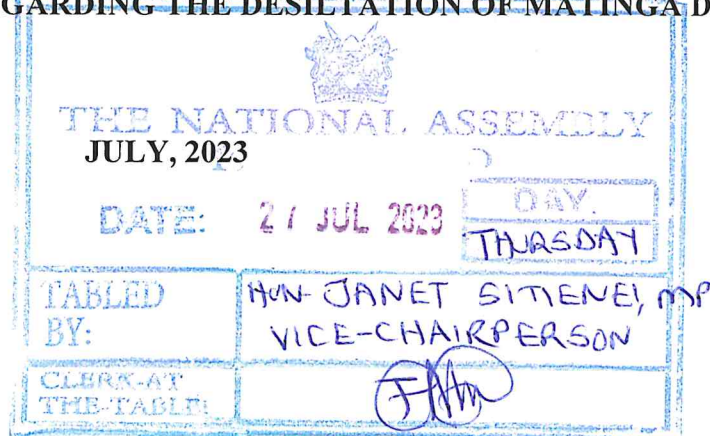 GARDING THE DESILTATION OF MATINGA D
THE NATIONAL ASSEMBLY
JULY, 2023
DATE: 27 JUL 2023
DAY.
THURSDAY
TABLED BY:
HON. JANET SITIENEI, MP
VICE-CHAIRPERSON
CLERK-AT THE-TABLE: